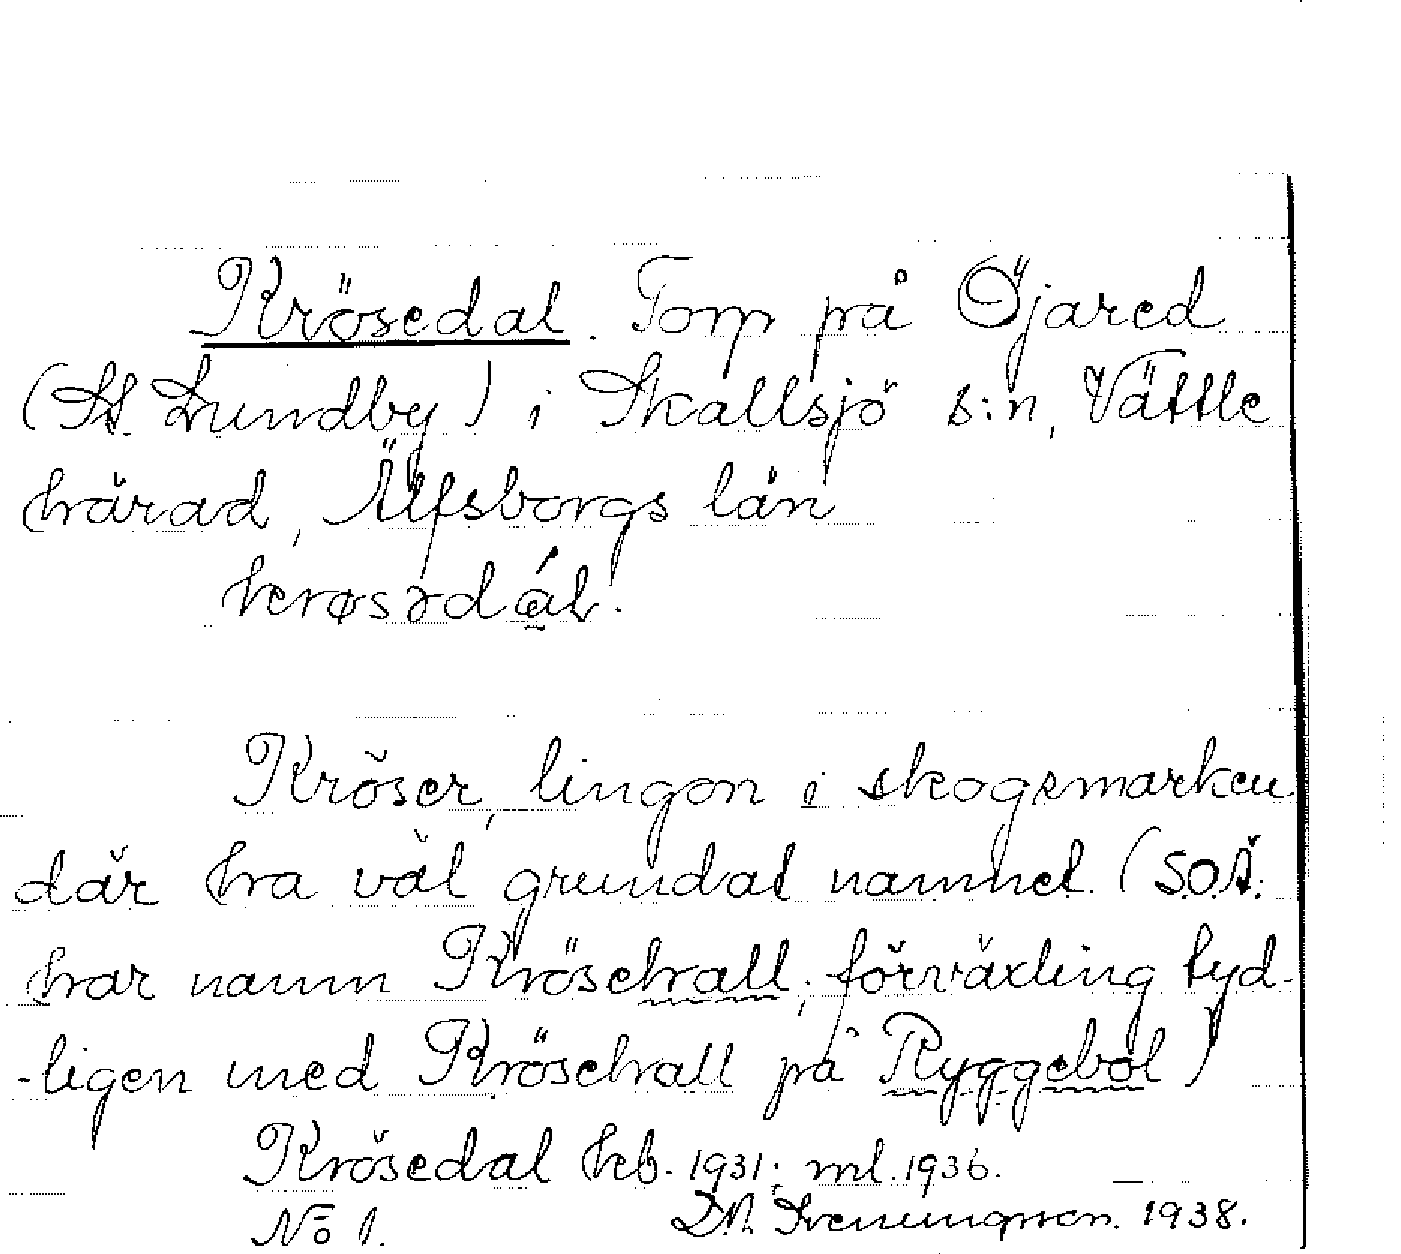 Krösedal. Torp på Öjared
(St. Lundby) i Skallsjö s:n, Vättle
härad, Älfsborgs län
Kröser, lingon i skogsmarken
där ha väl grundat namnet. (SOÄ.
har namn Krösehall; förväxling tyd-
-ligen med Krösehall på Ryggebol)
Krösedal hfb. 1931; ml. 1936.
No 1.
1938.